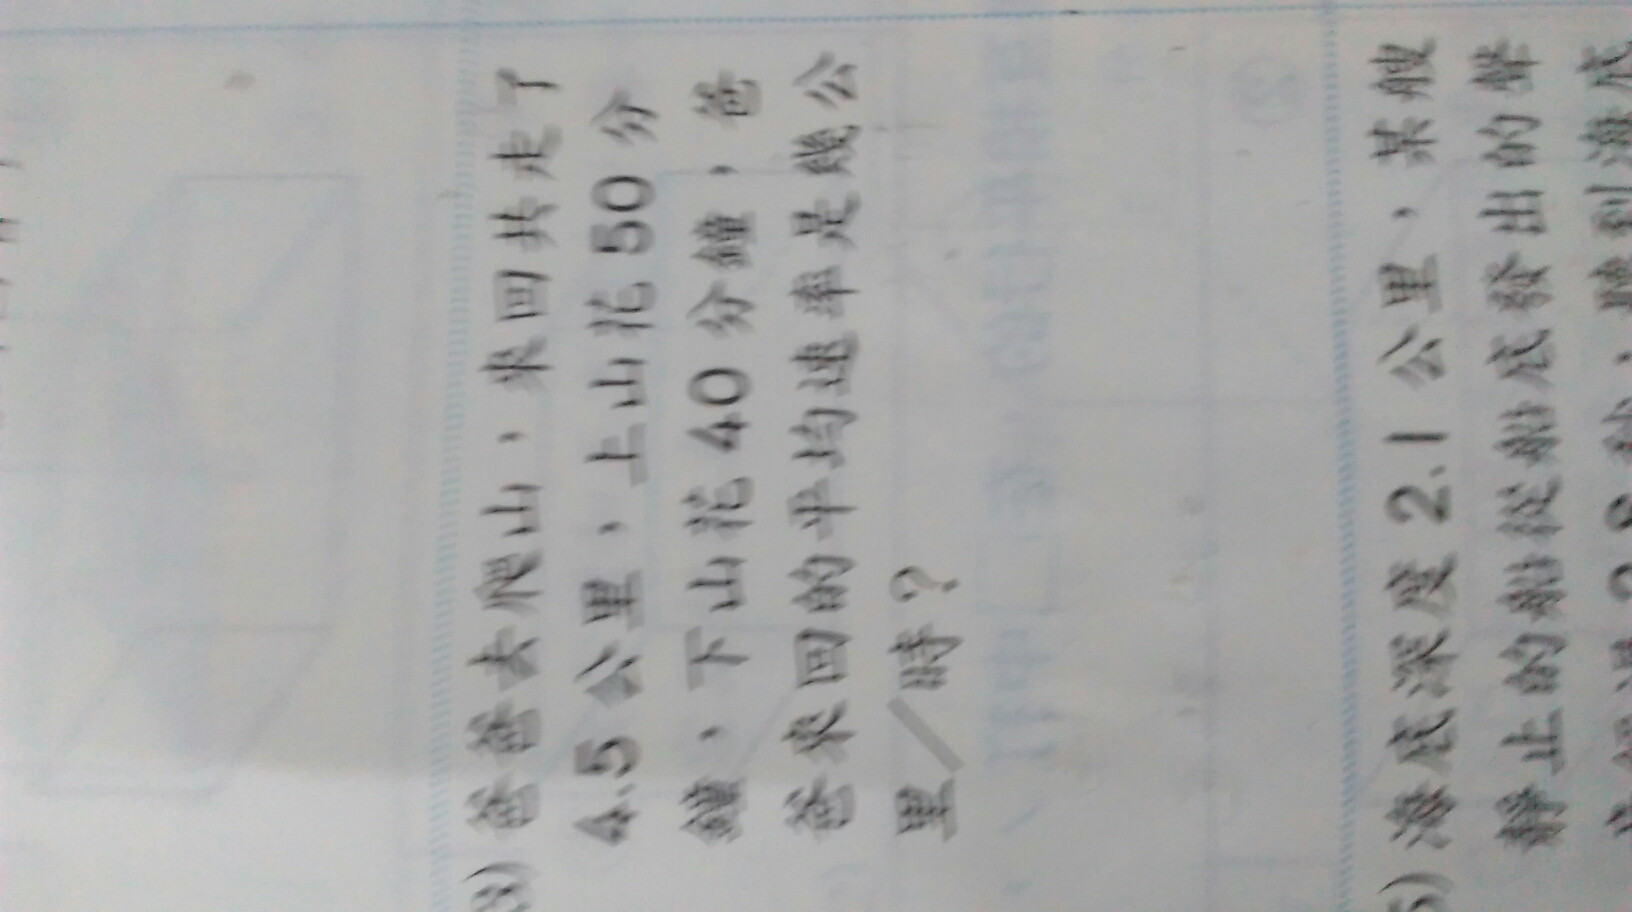 爸爸去爬山，來回共走了
4.5 公里，上山花 50 分
鐘，下山花 40 分鐘，爸
爸來回的平均速率是幾公
里／時？
海底深度 2.1 公里，某艘
靜止的船從船底發出的聲